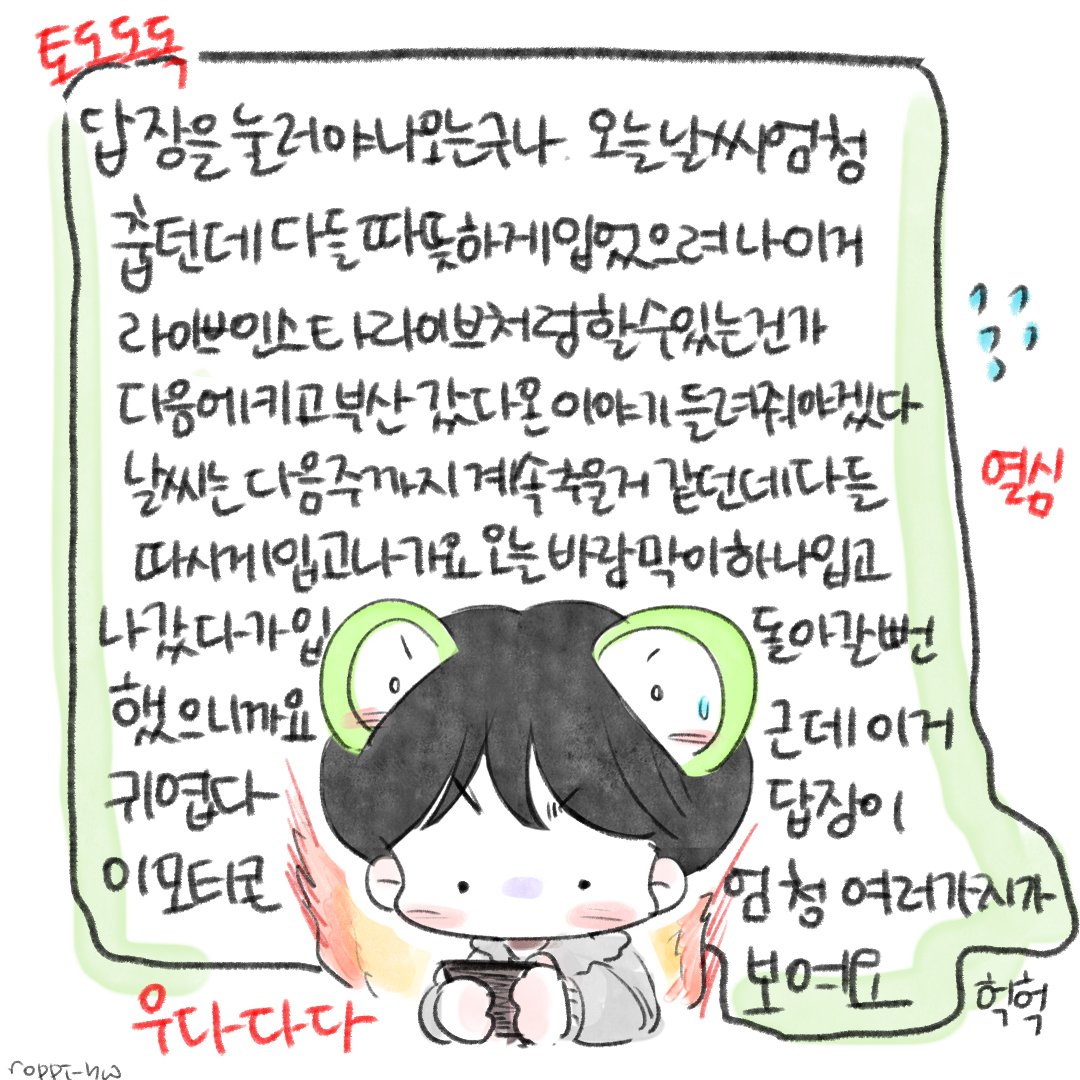 토도도독
답장을 눌러야 나오는구나. 오늘 날씨 엄청
춥던데 다들 따뜻하게 입었으려나 이거
라이브 인스타 라이브처럼 할 수 있는 건가
다음에 키고 부산 갔다온 이야기 들려줘야겠다
날씨는 다음주까지 계속 추울거 같던데 다들
따시게 입고 나가요 오늘 바람막이 하나 입고
나갔다가 입 돌아갈 뻔
했으니까요 근데 이거
귀엽다 답장이
이모티콘 엄청 여러가지가
보여요
열심
헉헉
우다다다
roppi-hw